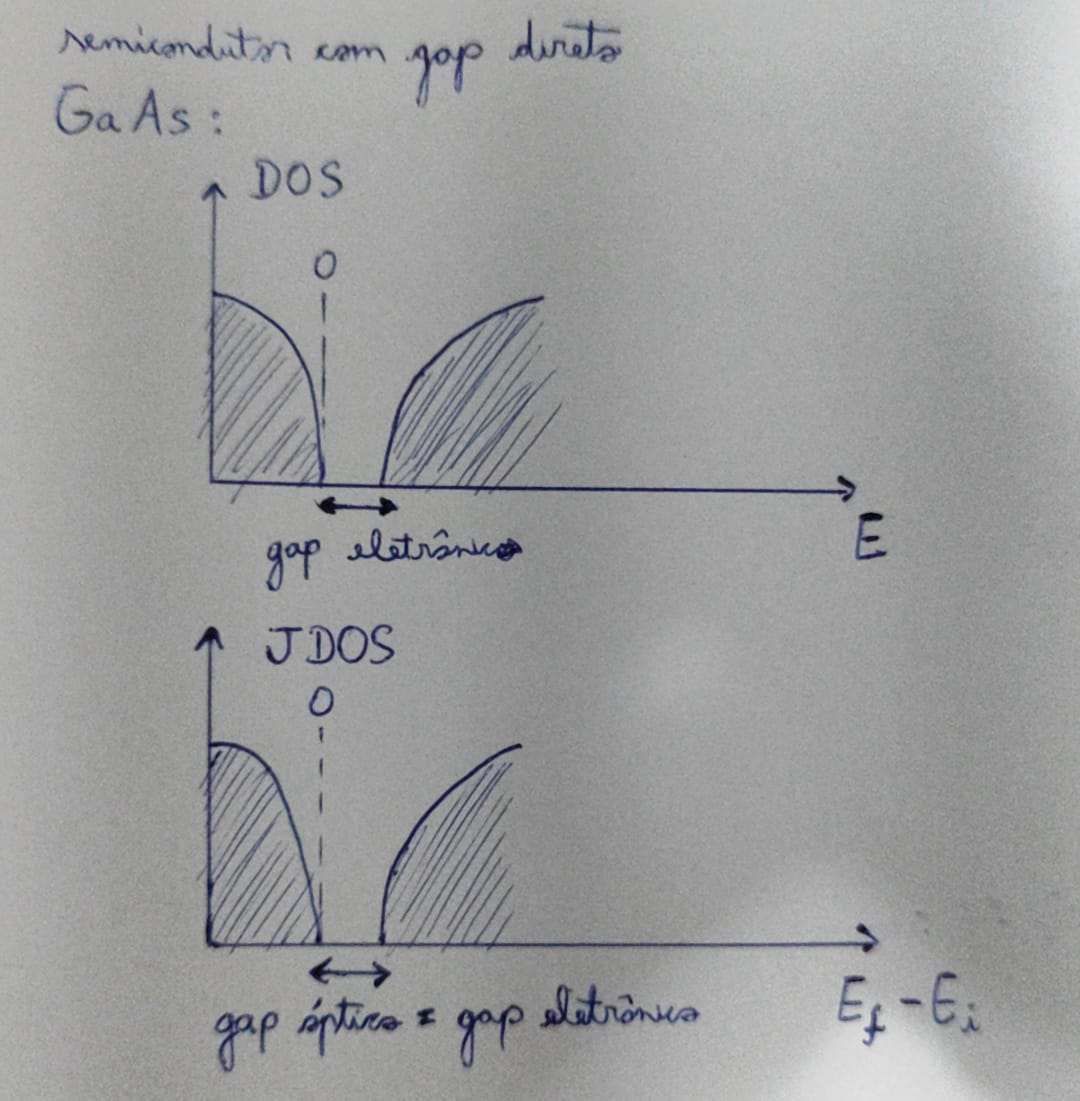 semicondutor com gap direto
GaAs:
DOS
0
gap eletrônico
E
JDOS
0
gap óptico = gap eletrônico
Ef - Ei